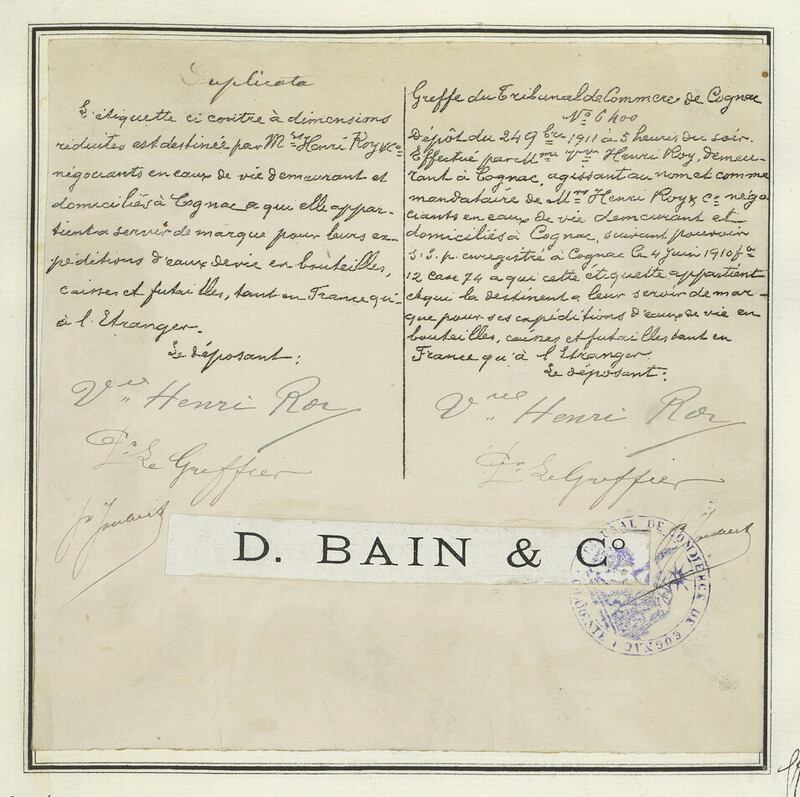 Duplicata
L'étiquette ci contre à dimensions
réduites est destinée par Mrs Henri Roy & Co
négociants en eaux de vie demeurant et
domiciliés à Cognac a qui elle appar-
tient a servir de marque pour leurs ex-
péditions d'eaux de vie en bouteilles,
caisses et futailles, tant en France qu'-
à l'Etranger.
Le déposant :
Vve Henri Roy
Pr Le Greffier
Greffe du Tribunal de Commerce de Cognac
No 6400
Dépôt du 24 9bre 1911 à 5 heures du soir.
Effectué par Mme Vve Henri Roy, demeu-
rant à Cognac, agissant au nom et comme
mandataire de Mrs Henri Roy & Co négo-
ciants en eaux de vie demeurant et
domiciliés à Cognac, suivant pouvoir
s.s.p. enregistré à Cognac le 4 Juin 1910 fo
12 case 74 a qui cette étiquette appartient
et qui la destinent a leur servir de mar-
que pour ses expéditions d'eaux de vie en
bouteilles, caisses et futailles tant en
France qu'à l'Etranger.
Le déposant :
Vve Henri Roy
Pr Le Greffier
D. BAIN & Co
TRIBUNAL DE COMMERCE DE COGNAC
CHARENTE